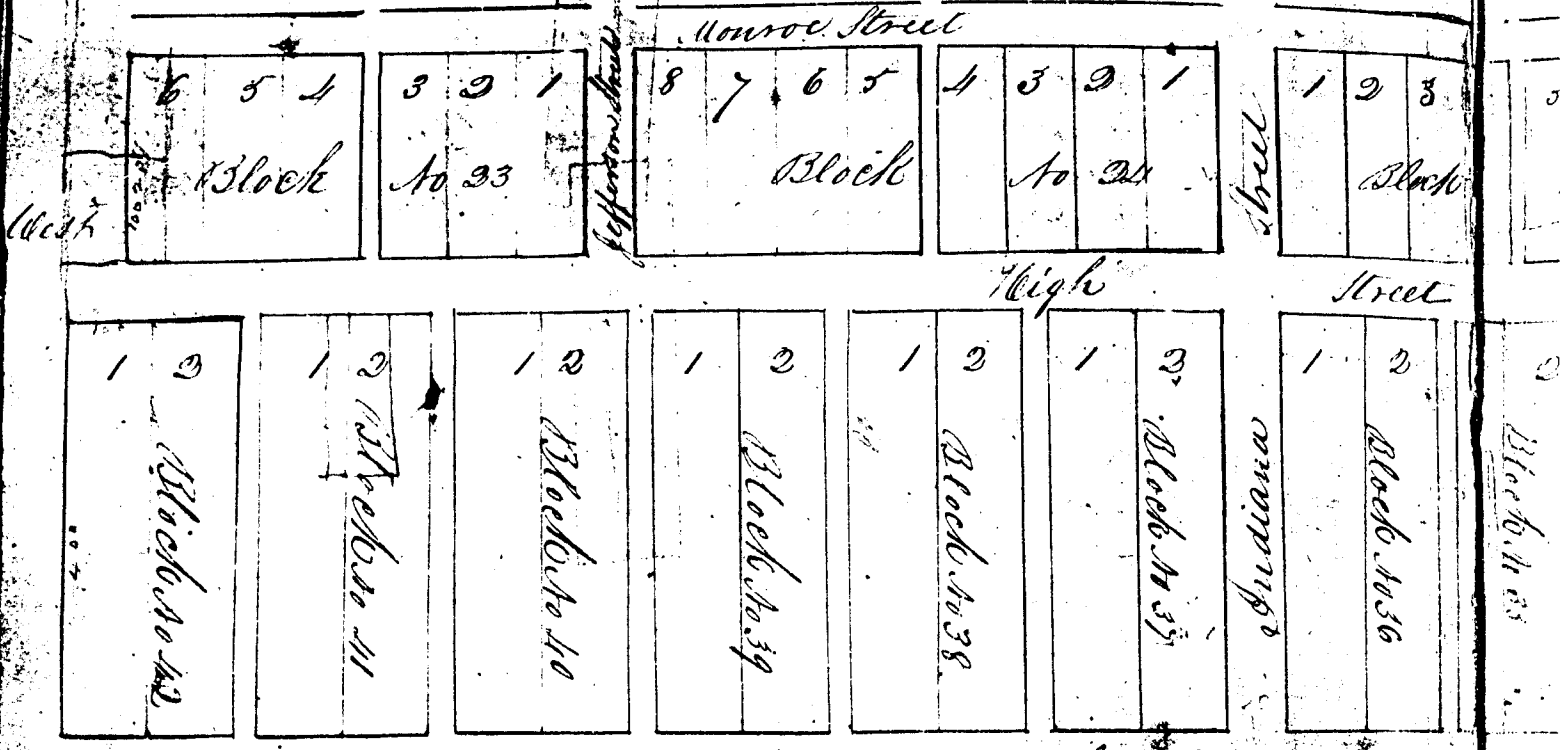 Monroe Street
6 5 4 3 2 1 8 7 6 5 4 3 2 1 1 2 3
Block No 23
Jefferson Street
Block No 24
Street
Block
West
High Street
1 2 1 2 1 2 1 2 1 2 1 2 1 2 2
Block No 42
Block No 41
Block No 40
Block No 39
Block No 38
Block No 37
Indiana
Block No 36
Block No